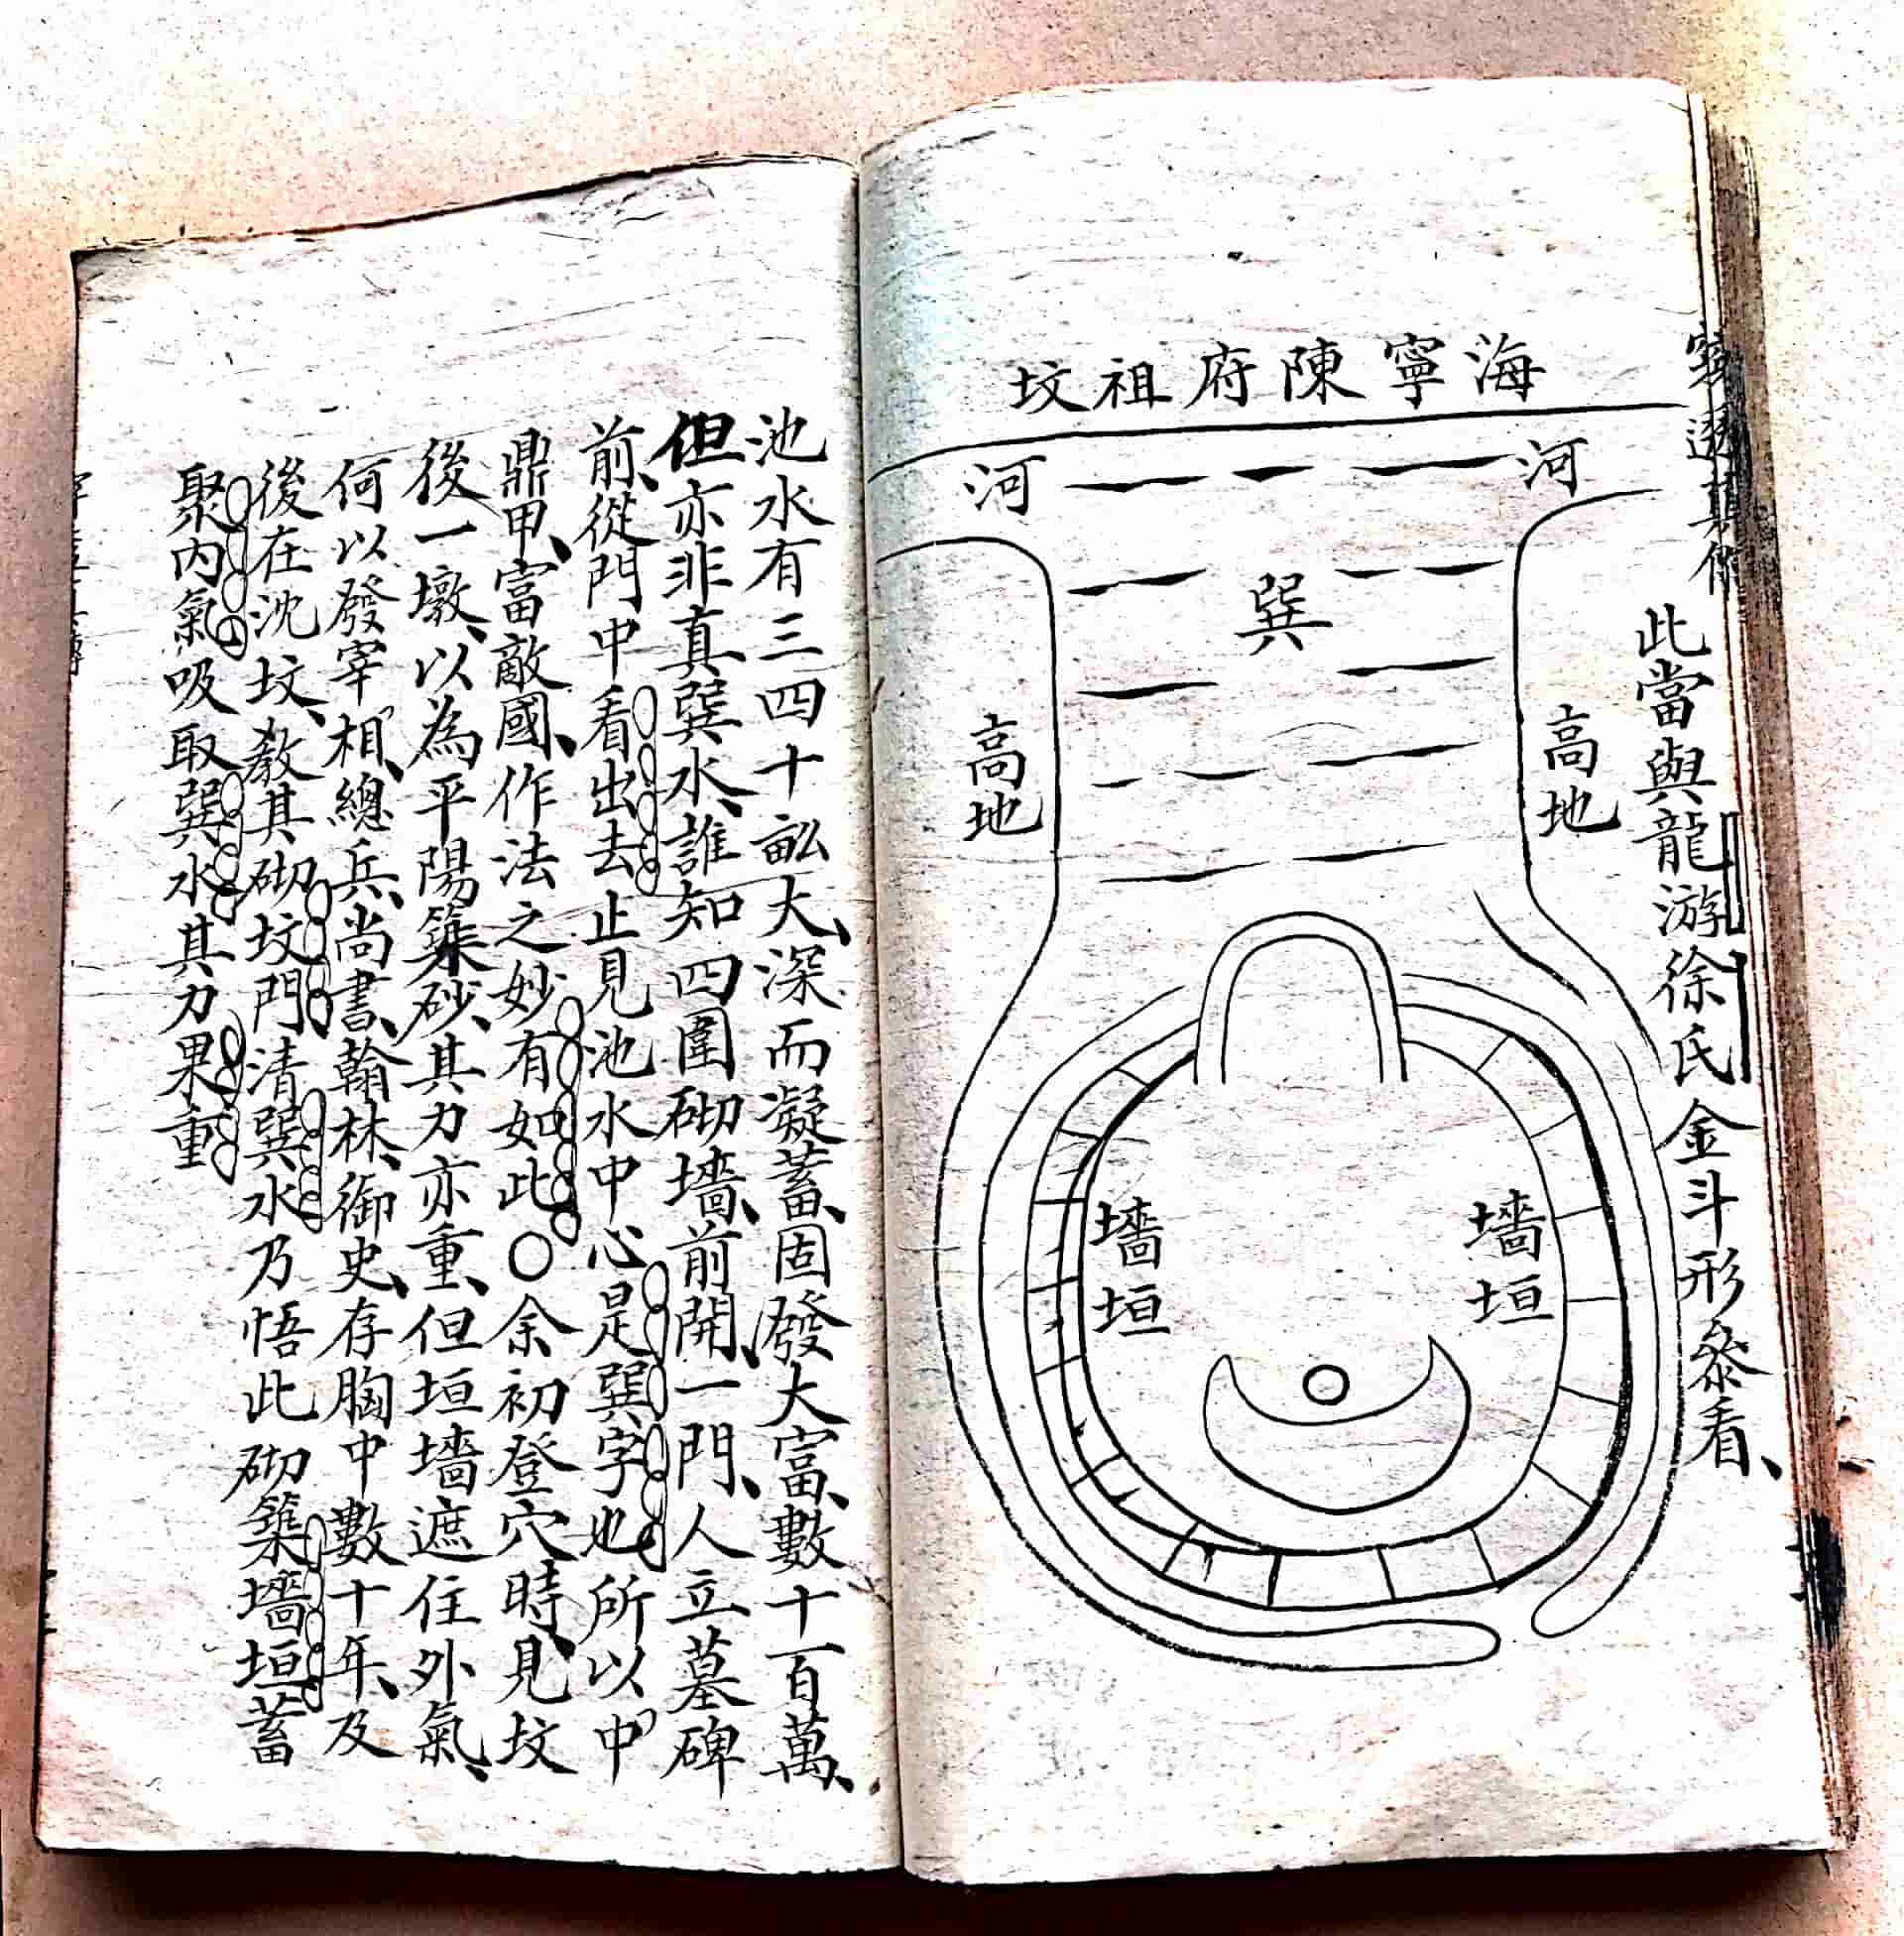 海寧陳府祖坟
此當與龍游徐氏金斗形叅看、
河
河
巽
高地
高地
墻垣
墻垣
池水有三四十畝大、深而凝蓄、固發大富、數十百萬、
但亦非真巽水、誰知四圍砌墻、前開一門、人立墓碑
前、從門中看出去止見池水中心是巽字也所以中
鼎甲、富敵國、作法之妙妙有如此〇余初登穴時、見坟
後一墩、以為平陽築砂、其力亦重、但垣墻遮住外氣、
何以發宰相、總兵、尚書、翰林、御史、存胸中數十年、及
後在沈坟、教其砌坟門清巽水乃悟此砌築墻垣蓄
聚內氣吸取巽水其力果重